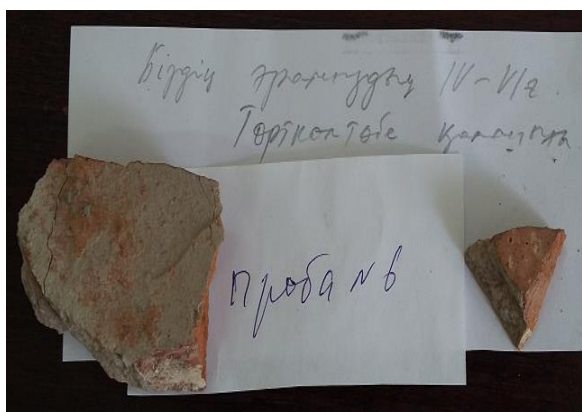 Біздің эрамыздың IV-VI ғ.
Төрткөлтөбе қаласы
Проба № 6